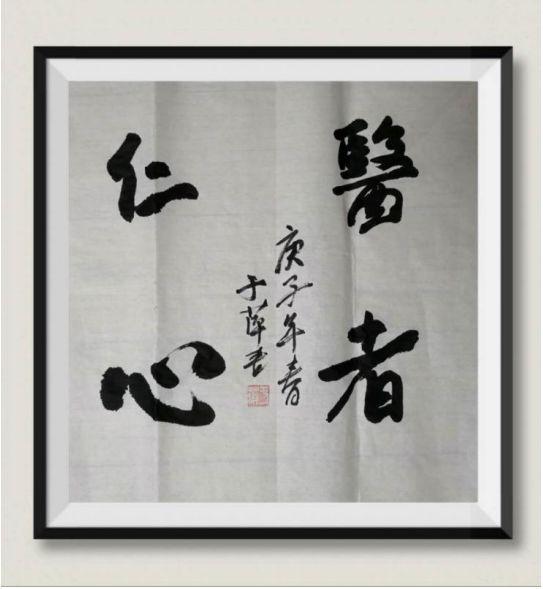 醫者
仁心
庚子年春
于萍香